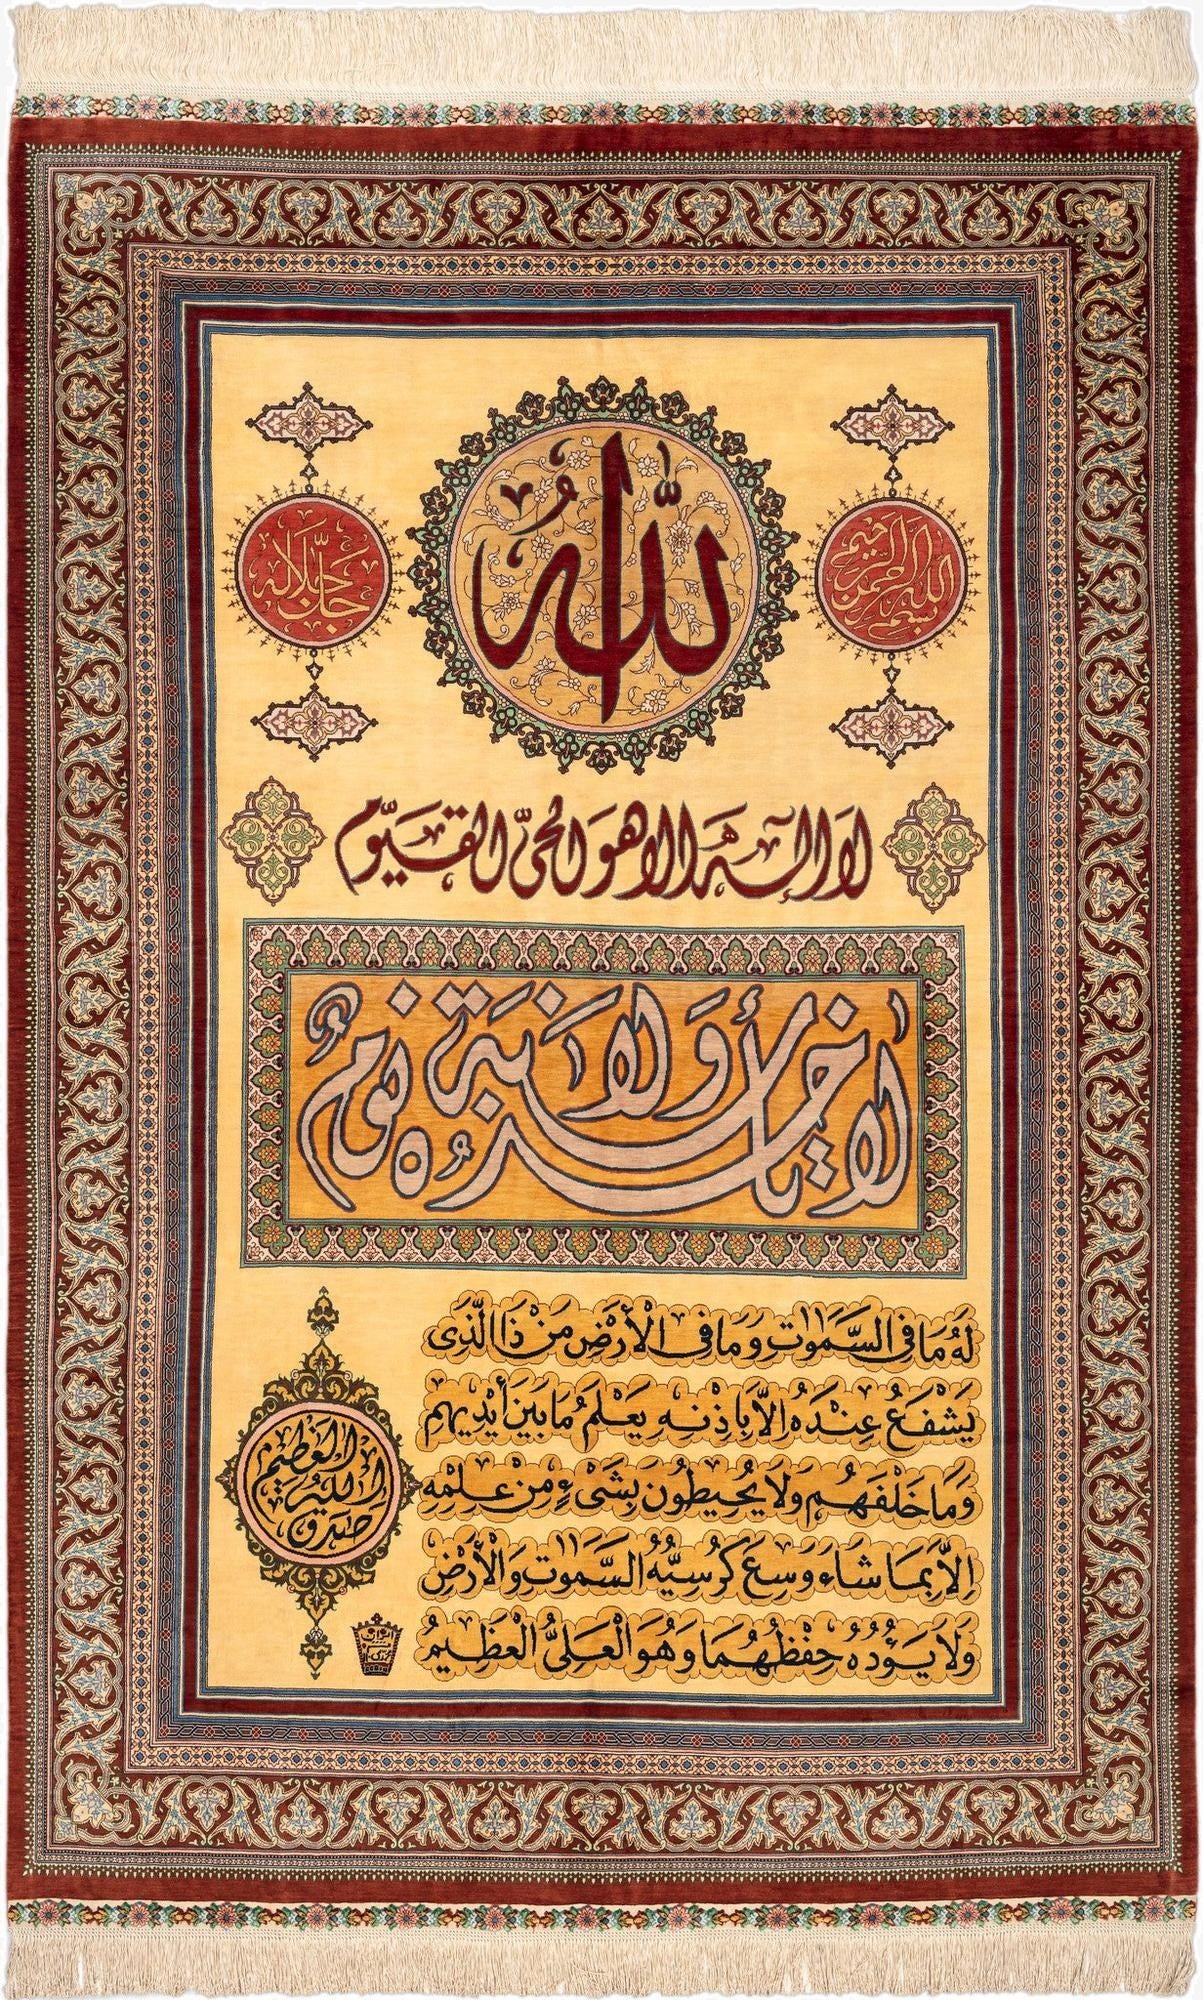 بسم الله الرحمن الرحيم
الله
جل جلاله
لا اله الا هو الحی القیوم
لا تأخذه سنة ولا نومٌ
لَهُ مَا فِی السَّمٰوٰتِ وَمَا فِی الْأَرْضِ مَنْ ذَا الَّذِی
یَشْفَعُ عِنْدَهُ اِلَّا بِاِذْنِهِ یَعْلَمُ مَا بَیْنَ أَیْدِیهِمْ
وَمَا خَلْفَهُمْ وَلَا یُحِیطُونَ بِشَیْءٍ مِنْ عِلْمِهِ
اِلَّا بِمَا شَاءَ وَسِعَ کُرْسِیُّهُ السَّمٰوٰتِ وَالْأَرْضَ
وَلَا یَؤُدُهُ حِفْظُهُمَا وَهُوَ الْعَلِیُّ الْعَظِیمُ
صدق الله العظيم